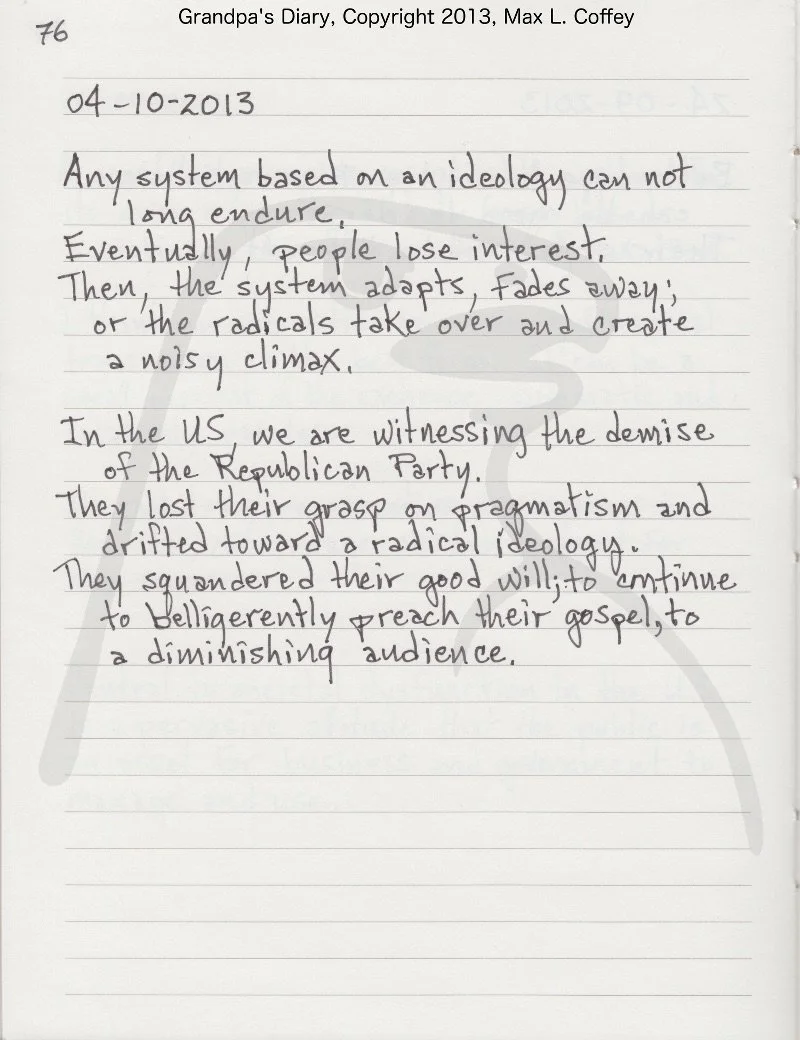 Grandpa's Diary, Copyright 2013, Max L. Coffey
76
04-10-2013
Any system based on an ideology can not
long endure.
Eventually, people lose interest.
Then, the system adapts, fades away;
or the radicals take over and create
a noisy climax.
In the US, we are witnessing the demise
of the Republican Party.
They lost their grasp on pragmatism and
drifted toward a radical ideology.
They squandered their good will; to continue
to belligerently preach their gospel, to
a diminishing audience.